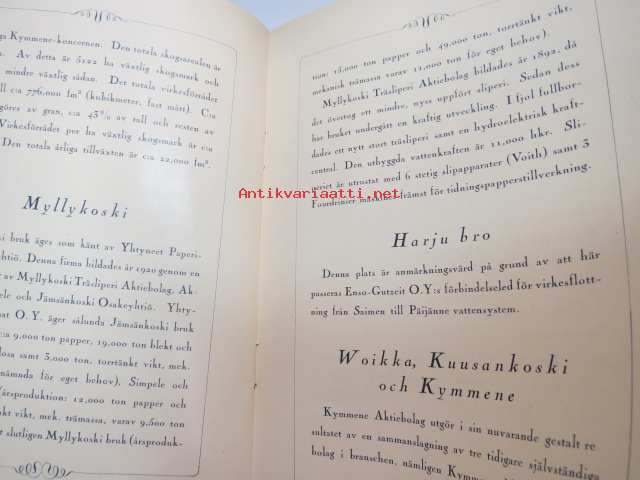 ga Kymmene-koncernen. Den totala skogsarealen är
Av detta är 5122 ha växtlig skogsmark och
mindre växtlig sådan. Det totala virkesförrådet
ll c:a 776,000 fm³ (kubikmeter, fast mått). C:a
göres av gran, c:a 43% av tall och resten av
Virkesförrådet per ha växtlig skogsmark är c:a
Den totala årliga tillväxten är c:a 22,000 fm³.
Myllykoski
ki bruk äges som känt av Yhtyneet Paperi-
htiö. Denna firma bildades år 1920 genom en
av Myllykoski Träsliperi Aktiebolag, Ak-
ele och Jämsänkoski Osakeyhtiö. Yhty-
at O.Y. äger sålunda Jämsänkoski bruk
c:a 9,000 ton papper, 19,000 ton blekt och
losa samt 3,000 ton, torrtänkt vikt, mek.
nämnda för eget behov). Simpele och
(årsproduktion: 12,000 ton papper och
nkt vikt, mek. trämassa, varav 9,500 ton
t slutligen Myllykoski bruk (årsproduk-
tion: 15,000 ton papper och 49,000 ton, torrtänkt vikt,
mekanisk trämassa varav 11,000 ton för eget behov).
Myllykoski Träsliperi Aktiebolag bildades år 1892, då
det övertog ett mindre, nyss uppfört sliperi. Sedan dess
har bruket undergått en kraftig utveckling. I fjol fullbor-
dades ett nytt stort träsliperi samt en hydroelektrisk kraft-
central. Den utbyggda vattenkraften är 11,000 hkr. Sli-
periet är utrustat med 6 stetig slipapparater (Voith) samt 3
Fourdrinier maskiner främst för tidningspapperstillverkning.
Antikvariaatti.net
Harju bro
Denna plats är anmärkningsvärd på grund av att här
passeras Enso-Gutzeit O.Y:s förbindelseled för virkesflott-
ning från Saimen till Päijänne vattensystem.
Woikka, Kuusankoski
och Kymmene
Kymmene Aktiebolag utgör i sin nuvarande gestalt re
sultatet av en sammanslagning av tre tidigare självständiga
bolag i branschen, nämligen Kymmene